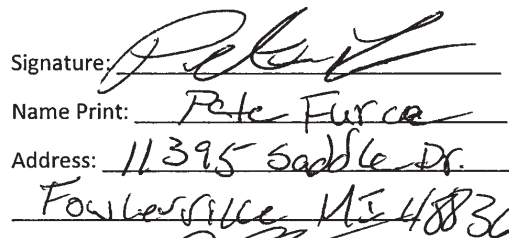 Signature:
Name Print: Pete Furca
Address: 11395 Saddle Dr.
Fowlerville MI 48836